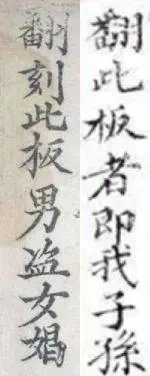 翻此板者即我子孫
翻刻此板男盗女娼